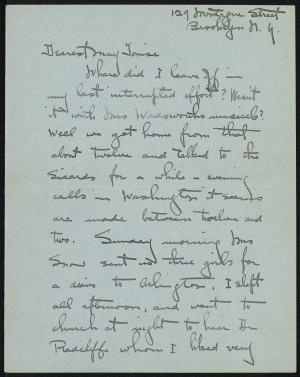 129 Montague Street
Brooklyn N.Y.
Dearest May Louise
Where did I leave off in
my last interrupted effort? Wasn't
it with Mrs Wadsworths musicale?
Well we got home from that
about twelve and talked to the
Sicards for a while - evening
calls in Washington it seems
are made between twelve and
two. Sunday morning Mrs
Snow sent us three girls for
a drive to Arlington, I slept
all afternoon, and went to
church at night to hear Dr
Radcliffe whom I liked very